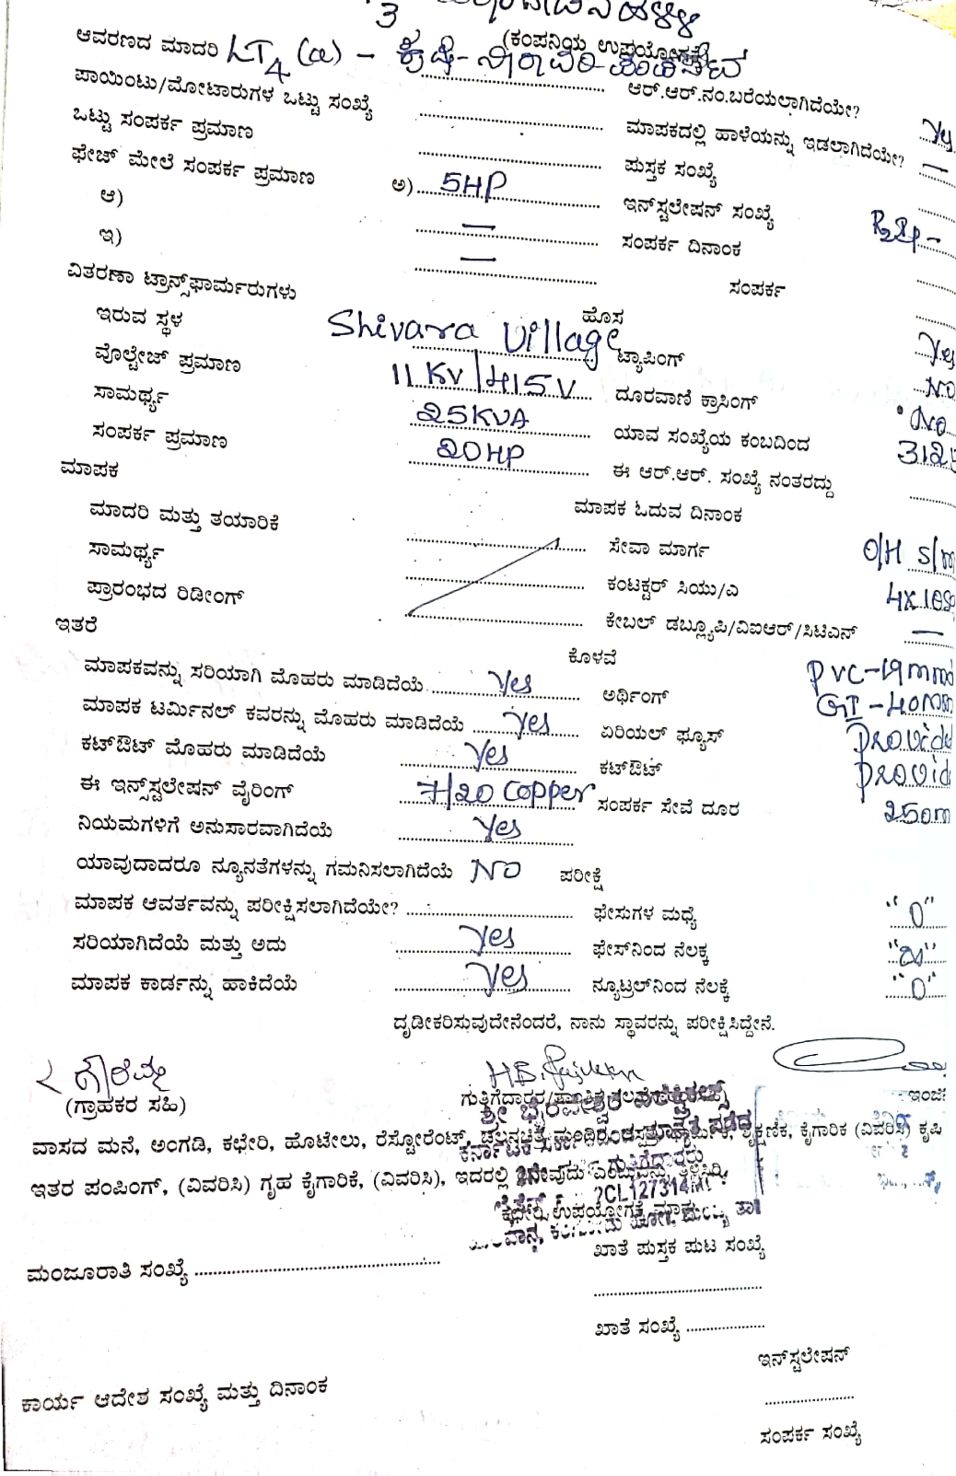 3
(ಕಂಪನಿಯ ಉಪಯೋಗಕ್ಕೆ)
ಆವರಣದ ಮಾದರಿ LT4 (a) - ಕೃಷಿ- ನೀರಾವರಿ-
ಪಾಯಿಂಟು/ಮೋಟಾರುಗಳ ಒಟ್ಟು ಸಂಖ್ಯೆ ಆರ್.ಆರ್.ನಂ.ಬರೆಯಲಾಗಿದೆಯೇ? Yes
ಒಟ್ಟು ಸಂಪರ್ಕ ಪ್ರಮಾಣ ಮಾಪಕದಲ್ಲಿ ಹಾಳೆಯನ್ನು ಇಡಲಾಗಿದೆಯೇ? —
ಫೇಜ್ ಮೇಲೆ ಸಂಪರ್ಕ ಪ್ರಮಾಣ ಪುಸ್ತಕ ಸಂಖ್ಯೆ
ಅ) 5HP ಇನ್‌ಸ್ಟಲೇಷನ್ ಸಂಖ್ಯೆ
ಆ) — ಸಂಪರ್ಕ ದಿನಾಂಕ
ಇ) — ಸಂಪರ್ಕ
ವಿತರಣಾ ಟ್ರಾನ್ಸ್‌ಫಾರ್ಮರುಗಳು ಹೊಸ Yes
ಇರುವ ಸ್ಥಳ Shivara Village ಟ್ಯಾಪಿಂಗ್ NO
ವೊಲ್ಟೇಜ್ ಪ್ರಮಾಣ 11KV/415V ದೂರವಾಣಿ ಕ್ರಾಸಿಂಗ್ No
ಸಾಮರ್ಥ್ಯ 25KVA ಯಾವ ಸಂಖ್ಯೆಯ ಕಂಬದಿಂದ
ಸಂಪರ್ಕ ಪ್ರಮಾಣ 20HP ಈ ಆರ್.ಆರ್. ಸಂಖ್ಯೆ ನಂತರದ್ದು
ಮಾಪಕ ಮಾಪಕ ಓದುವ ದಿನಾಂಕ
ಮಾದರಿ ಮತ್ತು ತಯಾರಿಕೆ ಸೇವಾ ಮಾರ್ಗ O/H S/m
ಸಾಮರ್ಥ್ಯ ಕಂಟಕ್ಟರ್ ಸಿಯು/ಎ
ಪ್ರಾರಂಭದ ರಿಡೀಂಗ್ ಕೇಬಲ್ ಡಬ್ಲ್ಯೂಪಿ/ವಿಐಆರ್/ಸಿಟಿಎನ್ —
ಇತರೆ ಕೊಳವೆ PVC-19mm
ಮಾಪಕವನ್ನು ಸರಿಯಾಗಿ ಮೊಹರು ಮಾಡಿದೆಯೆ Yes ಅರ್ಥಿಂಗ್ GI-40mm
ಮಾಪಕ ಟರ್ಮಿನಲ್ ಕವರನ್ನು ಮೊಹರು ಮಾಡಿದೆಯೆ Yes ಏರಿಯಲ್ ಫ್ಯೂಸ್ Provide
ಕಟ್‌ಔಟ್ ಮೊಹರು ಮಾಡಿದೆಯೆ Yes ಕಟ್‌ಔಟ್ provid
ಈ ಇನ್ಸ್‌ಸ್ಟಲೇಷನ್ ವೈರಿಂಗ್ 7/20 copper ಸಂಪರ್ಕ ಸೇವೆ ದೂರ 250m
ನಿಯಮಗಳಿಗೆ ಅನುಸಾರವಾಗಿದೆಯೆ Yes
ಯಾವುದಾದರೂ ನ್ಯೂನತೆಗಳನ್ನು ಗಮನಿಸಲಾಗಿದೆಯೆ NO ಪರೀಕ್ಷೆ
ಮಾಪಕ ಆವರ್ತವನ್ನು ಪರೀಕ್ಷಿಸಲಾಗಿದೆಯೇ? ಫೇಸುಗಳ ಮಧ್ಯೆ "0"
ಸರಿಯಾಗಿದೆಯೆ ಮತ್ತು ಅದು Yes ಫೇಸ್‌ನಿಂದ ನೆಲಕ್ಕ
ಮಾಪಕ ಕಾರ್ಡನ್ನು ಹಾಕಿದೆಯೆ Yes ನ್ಯೂಟ್ರಲ್‌ನಿಂದ ನೆಲಕ್ಕೆ "0"
ದೃಡೀಕರಿಸುವುದೇನೆಂದರೆ, ನಾನು ಸ್ಥಾವರನ್ನು ಪರೀಕ್ಷಿಸಿದ್ದೇನೆ.
(ಗ್ರಾಹಕರ ಸಹಿ)
ಶ್ರೀ ಭೈರವೇಶ್ವರ ಎಲೆಕ್ಟ್ರಿಕಲ್ಸ್
ವಾಸದ ಮನೆ, ಅಂಗಡಿ, ಕಛೇರಿ, ಹೊಟೇಲು, ರೆಸ್ಟೋರೆಂಟ್, ಶೈಕ್ಷಣಿಕ, ಕೈಗಾರಿಕ (ವಿವರಿಸಿ) ಕೃಷಿ
ಇತರ ಪಂಪಿಂಗ್, (ವಿವರಿಸಿ) ಗೃಹ ಕೈಗಾರಿಕೆ, (ವಿವರಿಸಿ), ಇದರಲ್ಲಿ ಯಾವುದು ಎಂಬುದನ್ನು ತಿಳಿಸಿರಿ.
ಕಛೇರಿ ಉಪಯೋಗಕ್ಕೆ ಮಾತ್ರ
ಖಾತೆ ಪುಸ್ತಕ ಪುಟ ಸಂಖ್ಯೆ
ಮಂಜೂರಾತಿ ಸಂಖ್ಯೆ
ಖಾತೆ ಸಂಖ್ಯೆ
ಇನ್‌ಸ್ಟಲೇಷನ್
ಕಾರ್ಯ ಆದೇಶ ಸಂಖ್ಯೆ ಮತ್ತು ದಿನಾಂಕ
ಸಂಪರ್ಕ ಸಂಖ್ಯೆ